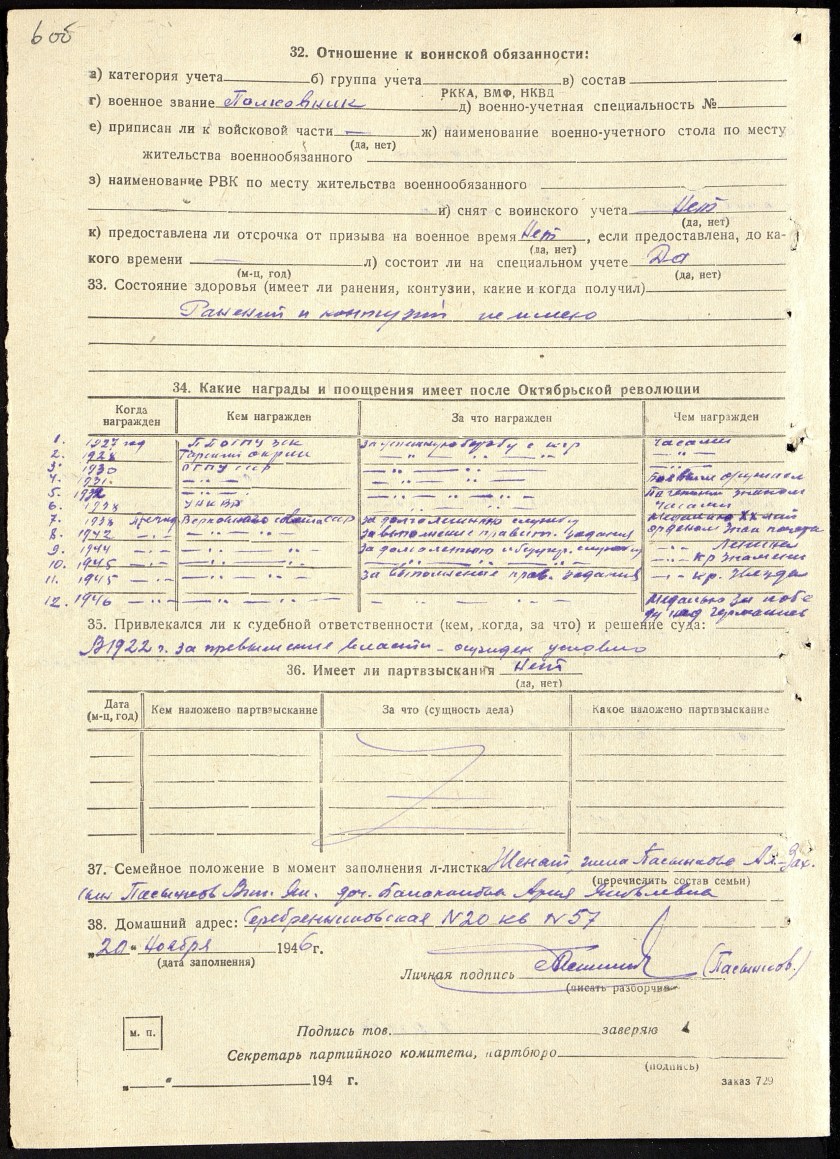 6 об
32. Отношение к воинской обязанности:
а) категория учета б) группа учета в) состав
РККА, ВМФ, НКВД
г) военное звание Полковник д) военно-учетная специальность №
е) приписан ли к войсковой части — ж) наименование военно-учетного стола по месту
(да, нет)
жительства военнообязанного
з) наименование РВК по месту жительства военнообязанного
и) снят с воинского учета Нет
(да, нет)
к) предоставлена ли отсрочка от призыва на военное время Нет, если предоставлена, до ка-
(да, нет)
кого времени — л) состоит ли на специальном учете Да
(м-ц, год) (да, нет)
33. Состояние здоровья (имеет ли ранения, контузии, какие и когда получил)
Ранений и контузий не имею
34. Какие награды и поощрения имеет после Октябрьской революции
Когда награжден Кем награжден За что награжден Чем награжден
1. 1927 год ППОГПУ ЗСК За успешную борьбу с к-р Часами
2. 1928 — " — " — " —
3. 1930 ОГПУ СССР — " — " — " —
4. 1931 — " — " — — " — " — " — Боевым оружием
5. 1932 — " — " — — " — " — " — Почетным знаком
6. 1938 УНКВД Часами
7. 1938 Президиум Верховного совета СССР за долголетнюю службу медалью XX лет
8. 1942 — " — " — за выполнение правит. задания орденом Знак почета
9. 1944 — " — " — за долголетнюю и безупр. службу — " — Ленина
10. 1945 — " — " — — " — " — " — — " — кр знамени
11. 1945 — " — " — за выполнение прав. задания — " — кр. Звезда
12. 1946 — " — " — — " — " — " — медалью за побе
ду над Германией
35. Привлекался ли к судебной ответственности (кем, когда, за что) и решение суда:
В 1922 г. за превышение власти — осужден условно
36. Имеет ли партвзыскания Нет
(да, нет)
Дата (м-ц, год) Кем наложено партвзыскание За что (сущность дела) Какое наложено партвзыскание
37. Семейное положение в момент заполнения л-листка Женат, жена Пасынкова Ал. Зах.
(перечислять состав семьи)
сын Пасынков Вит. Як. доч. Яковлевна
38. Домашний адрес: Серебрениковская N20 кв N57
„20" Ноября 1946 г.
(дата заполнения)
Личная подпись (Пасынков.)
(писать разборчиво)
м. п.
Подпись тов. заверяю
Секретарь партийного комитета, партбюро
(подпись)
„ " 194 г.
заказ 729